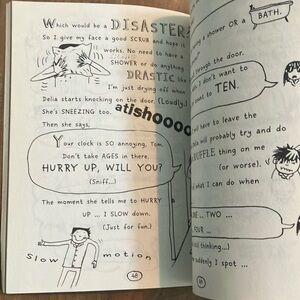 Which would be a DISASTER
So I give my face a good SCRUB and hope it
works. No need to have a
SHOWER or do anything
DRASTIC
I'm just drying off when
Delia starts knocking on the door (Loudly)
She's SNEEZING too.
atishoooo
Then she says,
Your clock is SO annoying, Tom.
Don't take AGES in there.
HURRY UP, WILL YOU?
(Sniff...)
The moment she tells me to HURRY
UP ... I SLOW down.
(Just for fun.)
Slow motion
48
a shower OR a
BATH.
through the door.
I don't want to
to TEN.
will have to leave the
will probably try and do
thing on me
(or worse).
what I can do when
... TWO ...
FOUR ...
thinking...)
suddenly I spot ...